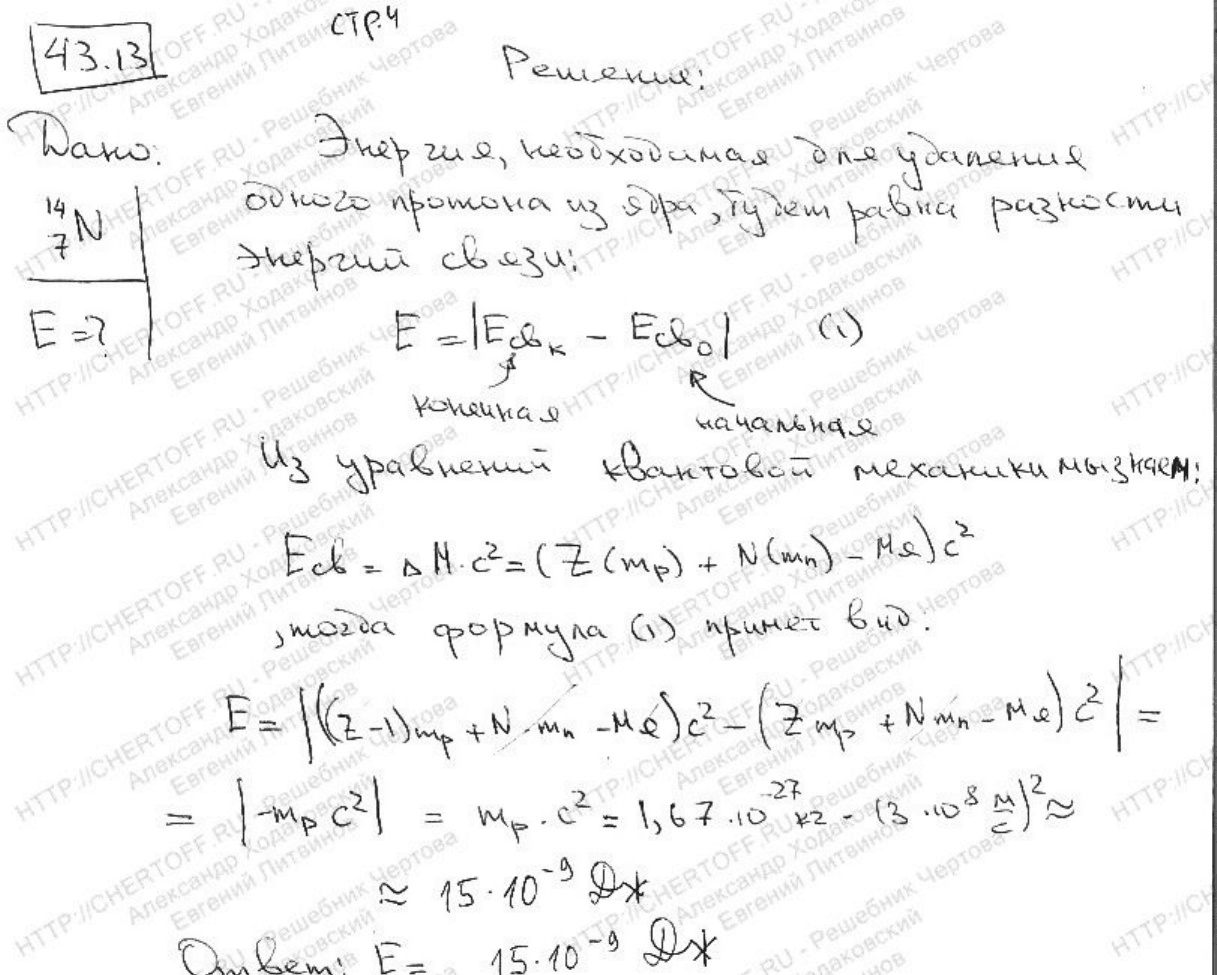 стр.4
43.13
Решение:
Дано:
Энергия, необходимая для удаления
одного протона из ядра, будет равна разности
энергий связи:
¹⁴₇N
E = ?
E = |Eсвₖ - Eсв₀| (1)
конечная
начальная
Из уравнений квантовой механики мы знаем:
Eсв = ΔM·c² = (Z(mp) + N(mn) - Mя)c²
, тогда формула (1) примет вид:
E = |((Z-1)mp + N·mn - Mя)c² - (Zmp + Nmn - Mя)c²| =
= |-mp c²| = mp·c² = 1,67·10⁻²⁷ кг · (3·10⁸ м/с)² ≈
≈ 15·10⁻⁹ Дж
Ответ: E = 15·10⁻⁹ Дж
HTTP://CHERTOFF.RU - Решебник Чертова
Александр Ходаковский
Евгений Литвинов